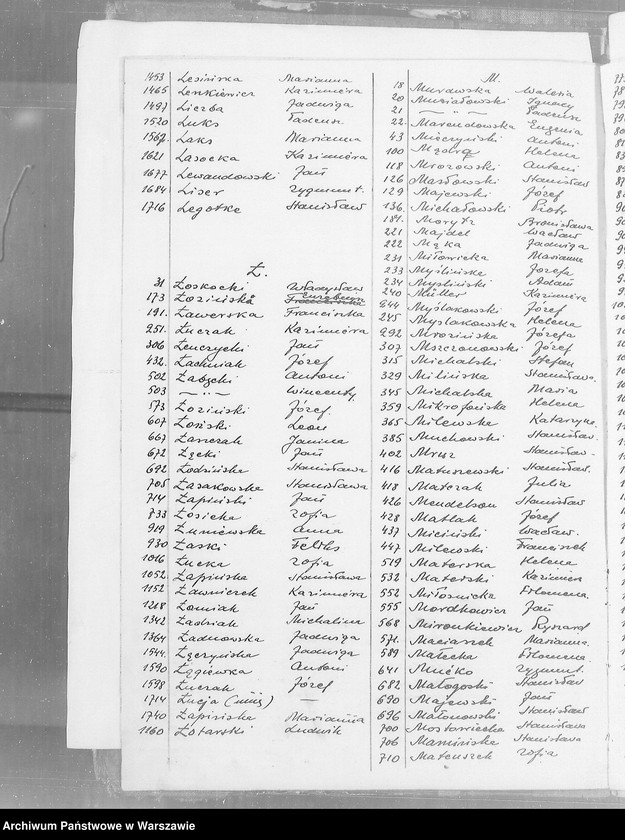 1453 Lesińska Marianna
1465 Lenkiewicz Kazimiera
1497 Liczba Jadwiga
1520 Luks Tadeusz
1567. Laks Marianna
1621 Lasocka Kazimiera
1677 Lewandowski Jan
1684 Liser Zygmunt.
1716 Legotke Stanisław
Ł.
31 Łoskocki Władysław
173 Łozińska
191. Ławerska Franciszka
251. Łuczak Kazimiera
306 Łenczycki Jan
432. Łachniak Józef
502 Antoni
503 — „ — Wincenty.
573 Łoziński Józef.
607 Łoński Leon
667 Łaszczak Janina
672 Łęcki Jan
692 Łodzińska Stanisława
705 Łasakowska Stanisława
714 Łapiński Jan
833 Łosicka Zofia
919 Łuniewska Anna
930 Łaski Feliks
1016 Łucka Zofia
1052. Łapińska Stanisława
1152 Ławniczek Kazimiera
1218 Łomiak Jan
1342 Ładniak Michalina
1364 Ładnowska Jadwiga
1544. Łęczyńska Jadwiga
1590 Antoni
1598 Łuczak Józef
1714 Łucja —
1740 Łapińska Marianna
1160 Łotarski Ludwik
M.
18 Murawska Waleria
20 Musiałowski Ignacy
21 — „ — Tadeusz
22. Marendowska Eugenia
43 Mieczyński Antoni
100 Helena
118 Mrozowski Antoni
126 Masłowski Stanisław
129 Majewski Józef
136. Michałowski Piotr
181. Morytz Bronisława
221 Majdel Wacław
222 Mąka Jadwiga
231 Miłowicka Marianna
233 Myślińska Józefa
234 Myśliński Adam
240 Müller Kazimiera
244 Myślakowski Józef
245 Myślakowska Helena
292 Mrozińska Józefa
307 Mszczonowski Józef
315 Michalski Stefan
329 Milińska Stanisława.
345 Michalska Maria
359 Mikrofońska Helena
365 Milewska Katarzyna.
385 Muchowski Stanisław.
402 Mrus Stanisław.
416 Matuszewski Stanisław.
418 Matczak Julia
426 Mendelson Stanisław
428 Matlak Józef
437 Miciński Wacław.
447 Milewski Franciszek
519 Materska Helena
532 Materski Kazimierz
552 Miłosnicka Filomena.
555 Mordkowicz Jan
568 Mironkiewicz Ryszard
571. Maciaszek Marianna.
589 Małecka Filomena.
641 Mućko Zygmunt.
682 Małogoski Stanisław
690 Majewski Jan
696 Malonowski Stanisław
700 Mostowiecka Stanisława
706 Mamińska Stanisława
710 Mateuszek Zofia
Archiwum Państwowe w Warszawie